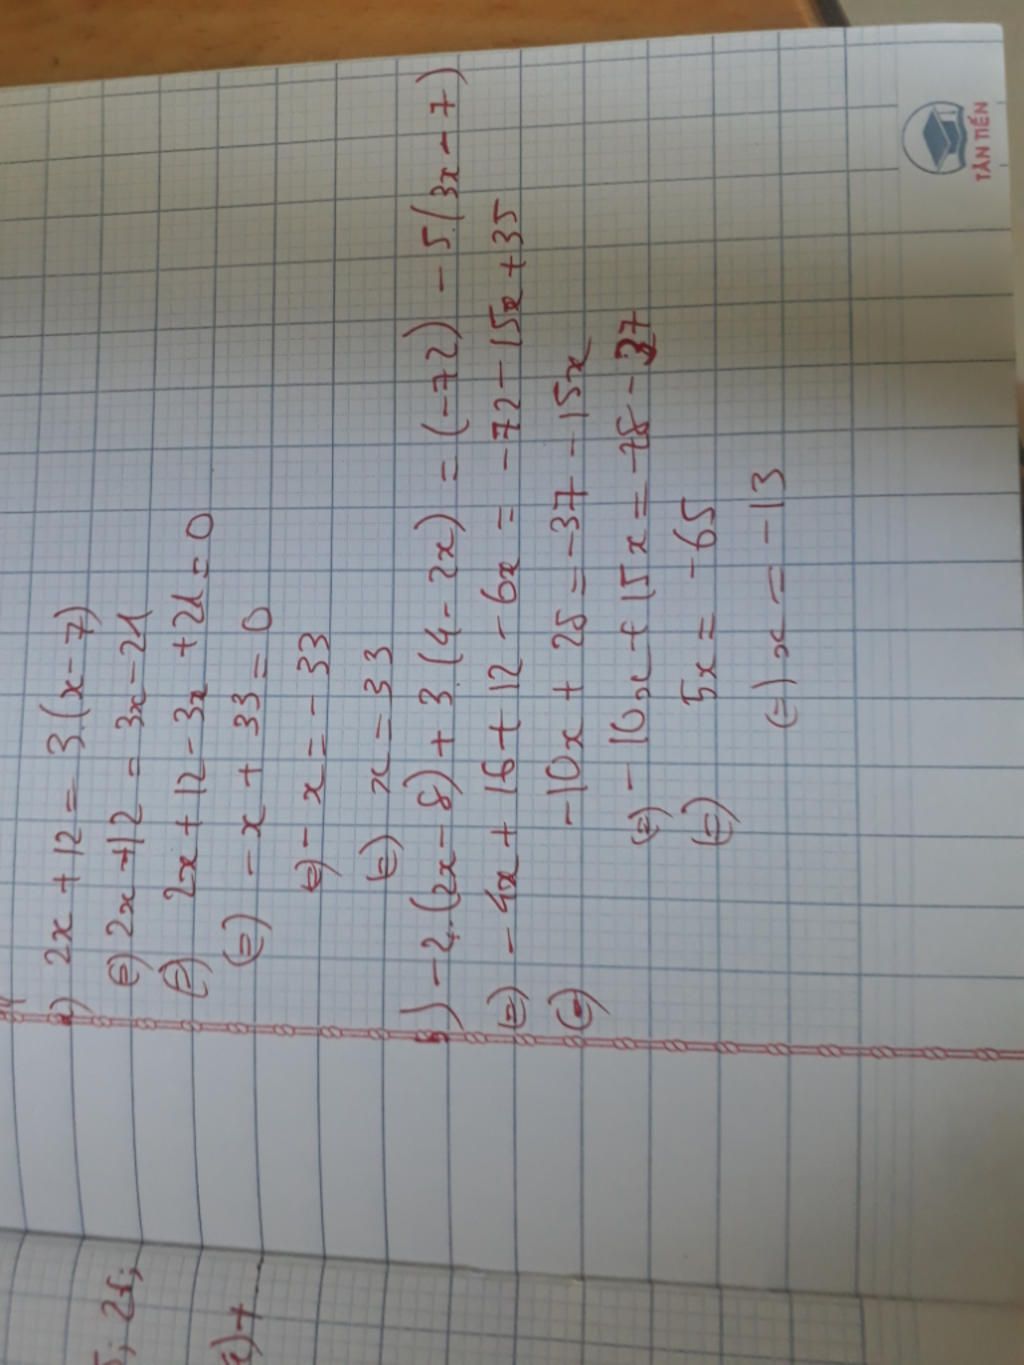 a) 2x + 12 = 3.(x - 7)
(=) 2x + 12 = 3x - 21
(=) 2x + 12 - 3x + 21 = 0
(=) - x + 33 = 0
(=) - x = - 33
(=) x = 33
b) - 2.(2x - 8) + 3.(4 - 2x) = (-72) - 5.(3x - 7)
(=) - 4x + 16 + 12 - 6x = - 72 - 15x + 35
(=) -10x + 28 = - 37 - 15x
(=) - 10x + 15x = -28 - 37
(=) 5x = - 65
(=) x = - 13
TÂN TIẾN